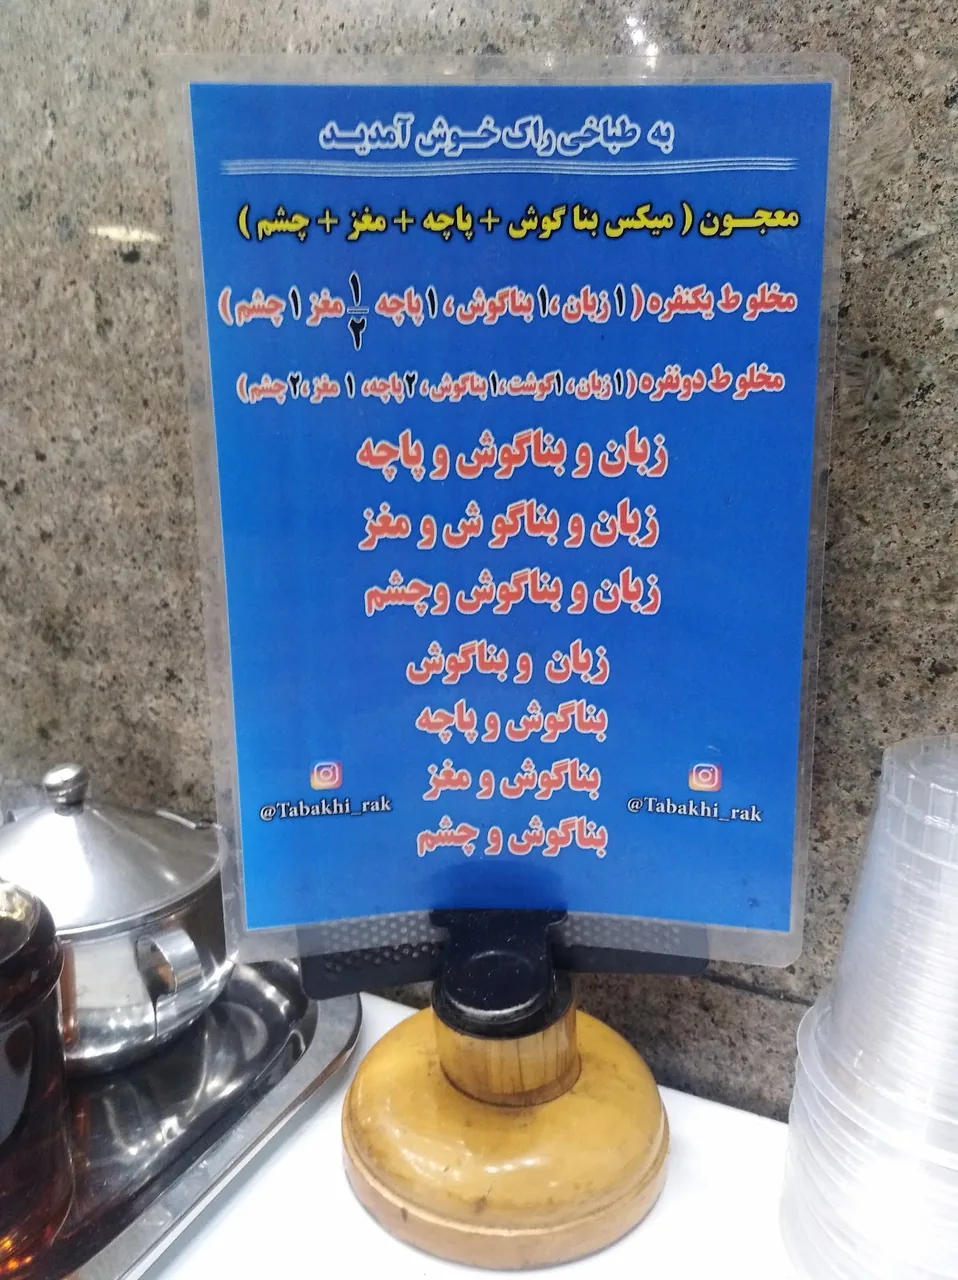 به طباخی راک خـوش آمدیـد
معجـون ( میکس بنا گوش + پاچه + مغز + چشم )
مخلو ط یکنفره ( ۱ زبان ،۱ بناگوش ، ۱ پاچه ۱/۲ مغز ۱ چشم )
مخلو ط دونفره (۱ زبان ، ۱گوشت،۱ بناگوش، ۲ پاچه، ۱ مغز ،۲ چشم)
زبان و بناگوش و پاچه
زبان و بناگو ش و مغز
زبان و بناگوش وچشم
زبان و بناگوش
بناگوش و پاچه
بناگوش و مغز
@Tabakhi_rak
@Tabakhi_rak
بناگوش و چشم